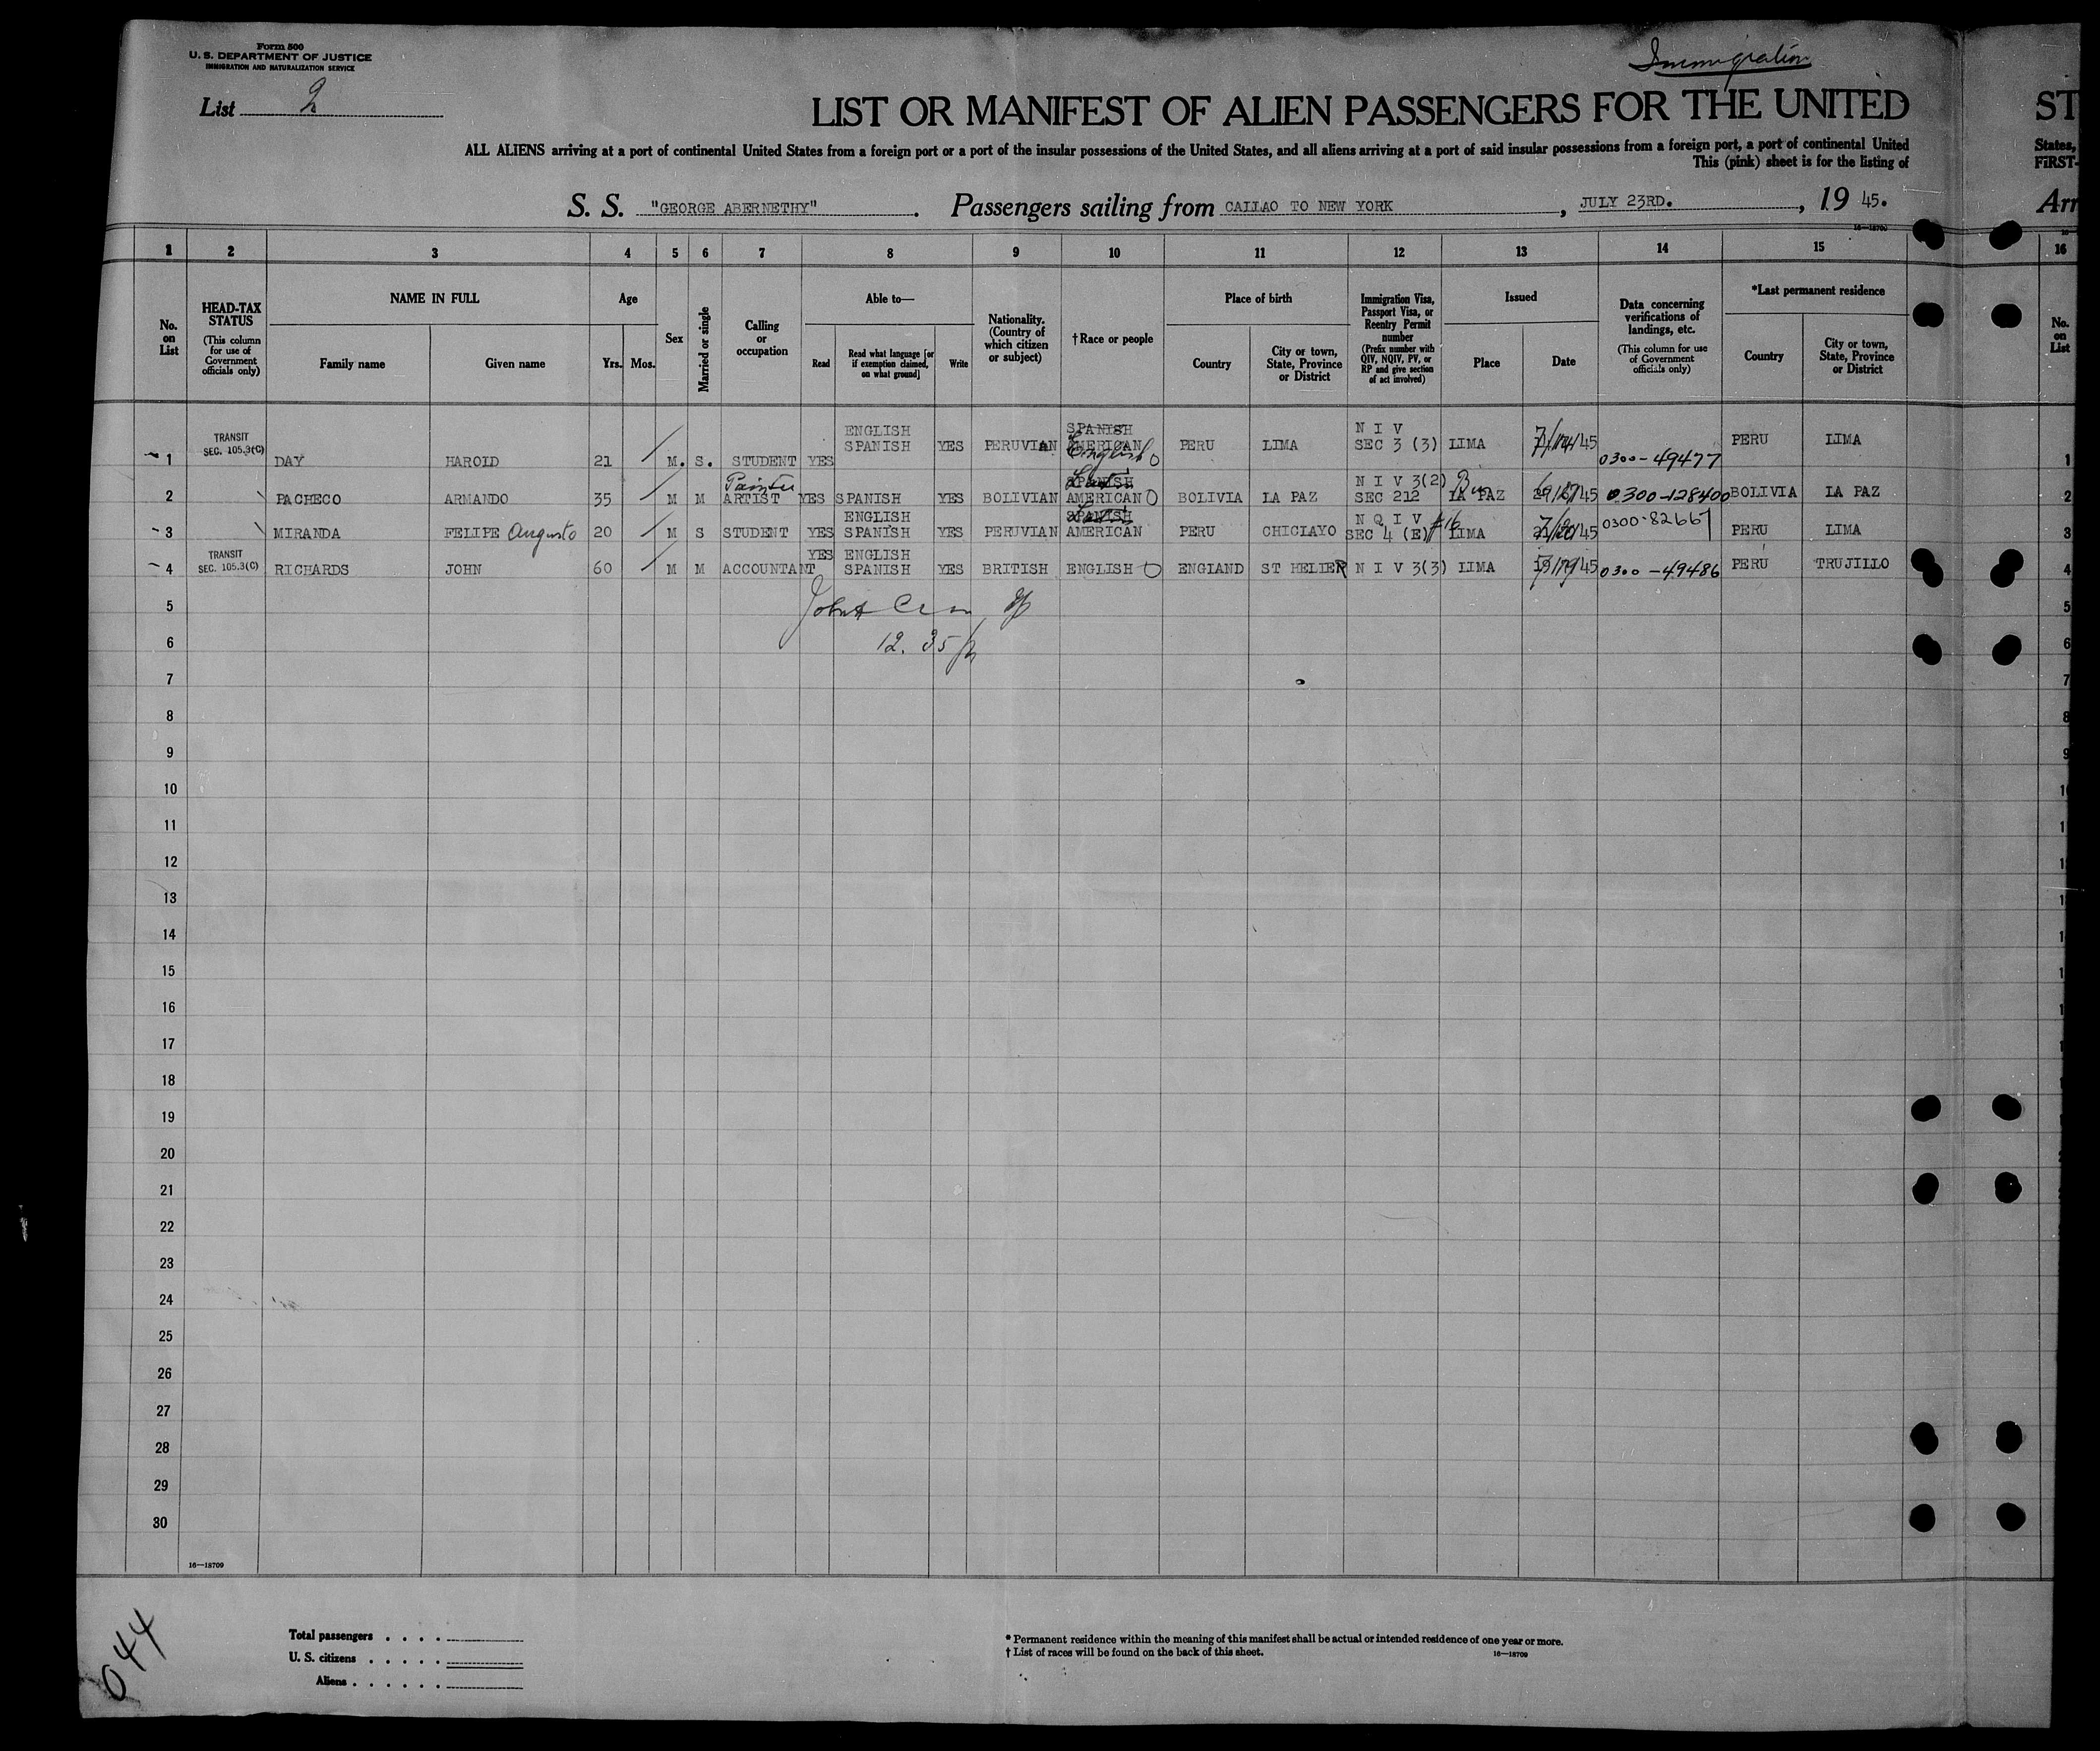 Form 500
U. S. DEPARTMENT OF JUSTICE
IMMIGRATION AND NATURALIZATION SERVICE
Immigration
List 2
LIST OR MANIFEST OF ALIEN PASSENGERS FOR THE UNITED ST
ALL ALIENS arriving at a port of continental United States from a foreign port or a port of the insular possessions of the United States, and all aliens arriving at a port of said insular possessions from a foreign port, a port of continental United States,
This (pink) sheet is for the listing of FIRST-
S. S. "GEORGE ABERNETHY". Passengers sailing from CALLAO TO NEW YORK, JULY 23RD., 19 45. Arr
16—18709
1 2 3 4 5 6 7 8 9 10 11 12 13 14 15 16
No. on List
HEAD-TAX STATUS
(This column for use of Government officials only)
NAME IN FULL
Family name
Given name
Age
Yrs. Mos.
Sex
Married or single
Calling or occupation
Able to—
Read
Read what language [or if exemption claimed, on what ground]
Write
Nationality. (Country of which citizen or subject)
†Race or people
Place of birth
Country
City or town, State, Province or District
Immigration Visa, Passport Visa, or Reentry Permit number
(Prefix number with QIV, NQIV, PV, or RP and give section of act involved)
Issued
Place
Date
Data concerning verifications of landings, etc.
(This column for use of Government officials only)
*Last permanent residence
Country
City or town, State, Province or District
No. on List
ENGLISH SPANISH N I V
TRANSIT SEC. 105.3(C) SPANISH YES PERUVIAN AMERICAN PERU LIMA SEC 3 (3) LIMA /45 PERU LIMA
1 DAY HAROLD 21 M. S. STUDENT YES English 0300-49477 1
Painter SPANISH N I V 3(2)
2 PACHECO ARMANDO 35 M M ARTIST YES SPANISH YES BOLIVIAN AMERICAN BOLIVIA LA PAZ SEC 212 LA PAZ /45 0300-128400 BOLIVIA LA PAZ 2
ENGLISH SPANISH N Q I V #16
3 MIRANDA FELIPE Augusto 20 M S STUDENT YES SPANISH YES PERUVIAN AMERICAN PERU CHICLAYO SEC 4 (E) LIMA /45 0300-82667 PERU LIMA 3
TRANSIT SEC. 105.3(C) YES ENGLISH
4 RICHARDS JOHN 60 M M ACCOUNTANT SPANISH YES BRITISH ENGLISH ENGLAND ST HELIER N I V 3(3) LIMA /45 0300-49486 PERU TRUJILLO 4
5 5
6 12.35 6
7 7
8 8
9 9
10
11
12
13
14
15
16
17
18
19
20
21
22
23
24
25
26
27
28
29
30
16—18709
044
Total passengers . . . .
U. S. citizens . . . . .
Aliens . . . . . .
* Permanent residence within the meaning of this manifest shall be actual or intended residence of one year or more.
† List of races will be found on the back of this sheet.
16—18709